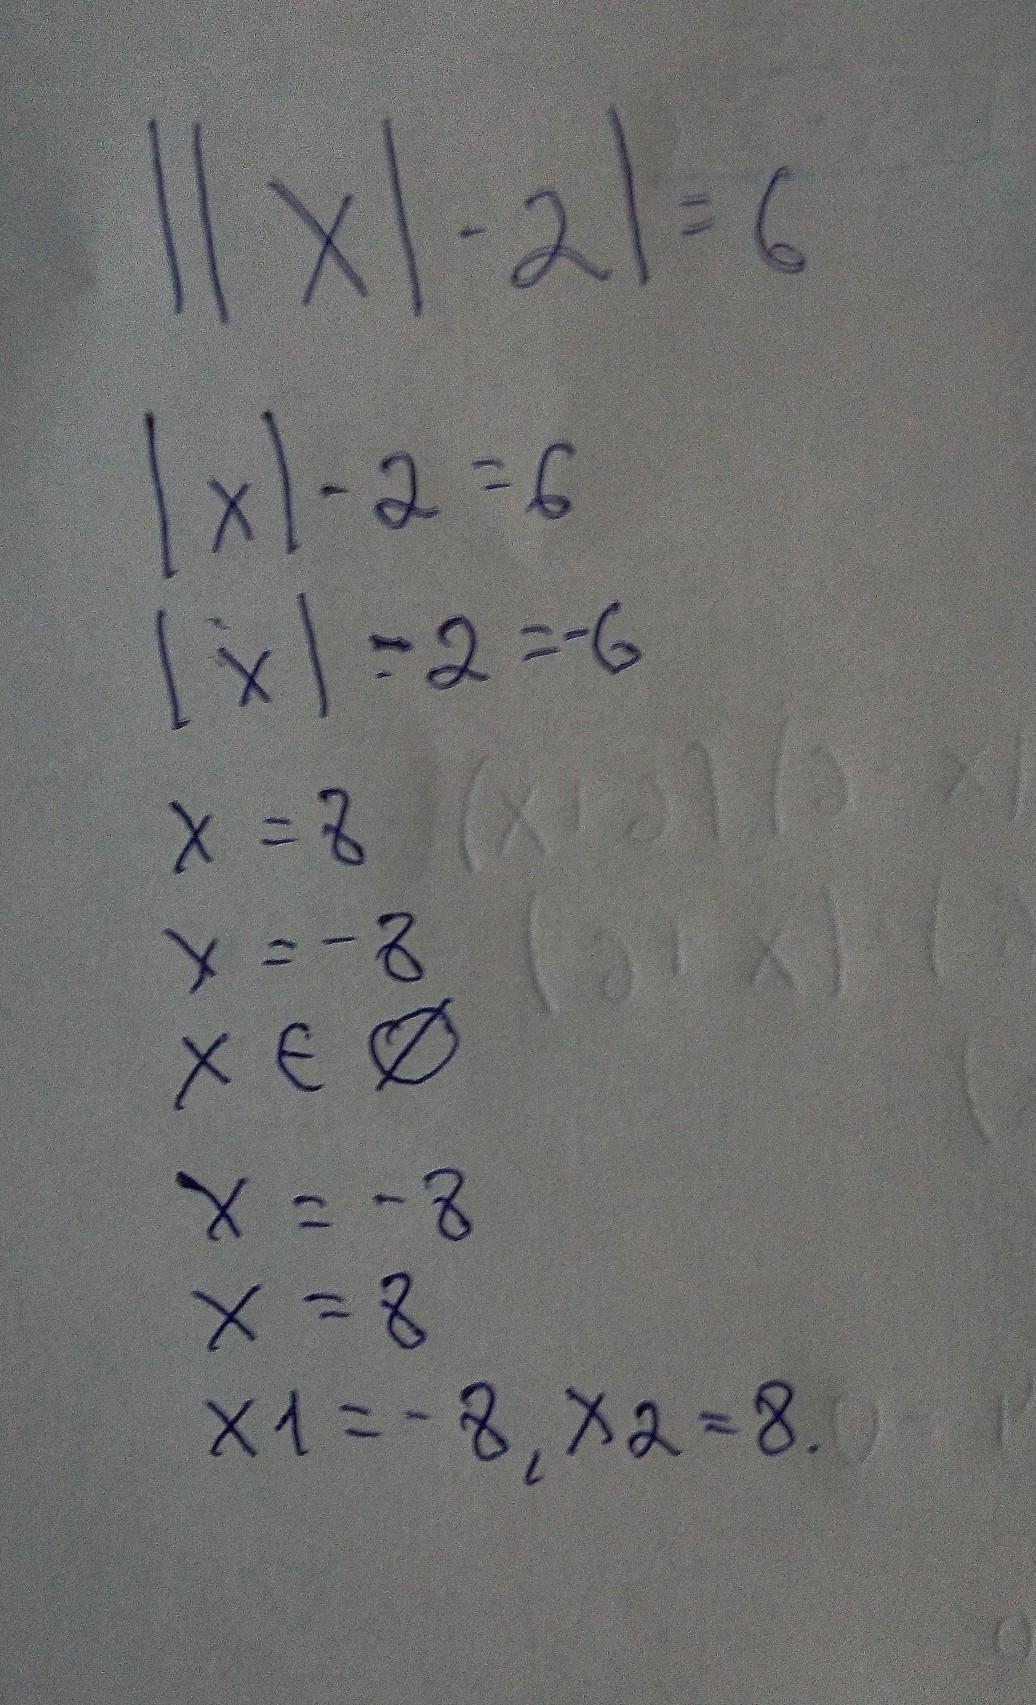 ||x|-2|=6
|x|-2=6
|x|-2=-6
x=8
x=-8
x∈∅
x=-8
x=8
x1=-8, x2=8.